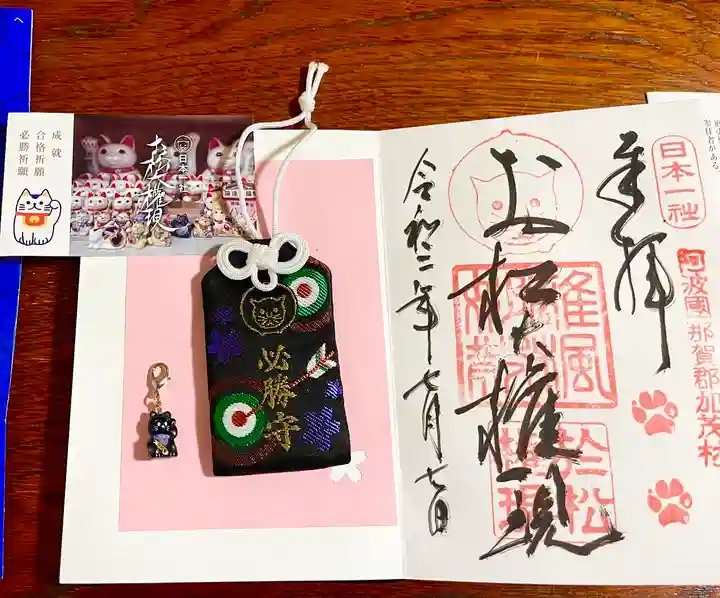 成就
合格祈願
必勝祈願
日本一社
お松大権現
必勝守
奉拝
日本一社
阿波國那賀郡加茂村
お松大権現
令和二年七月七日